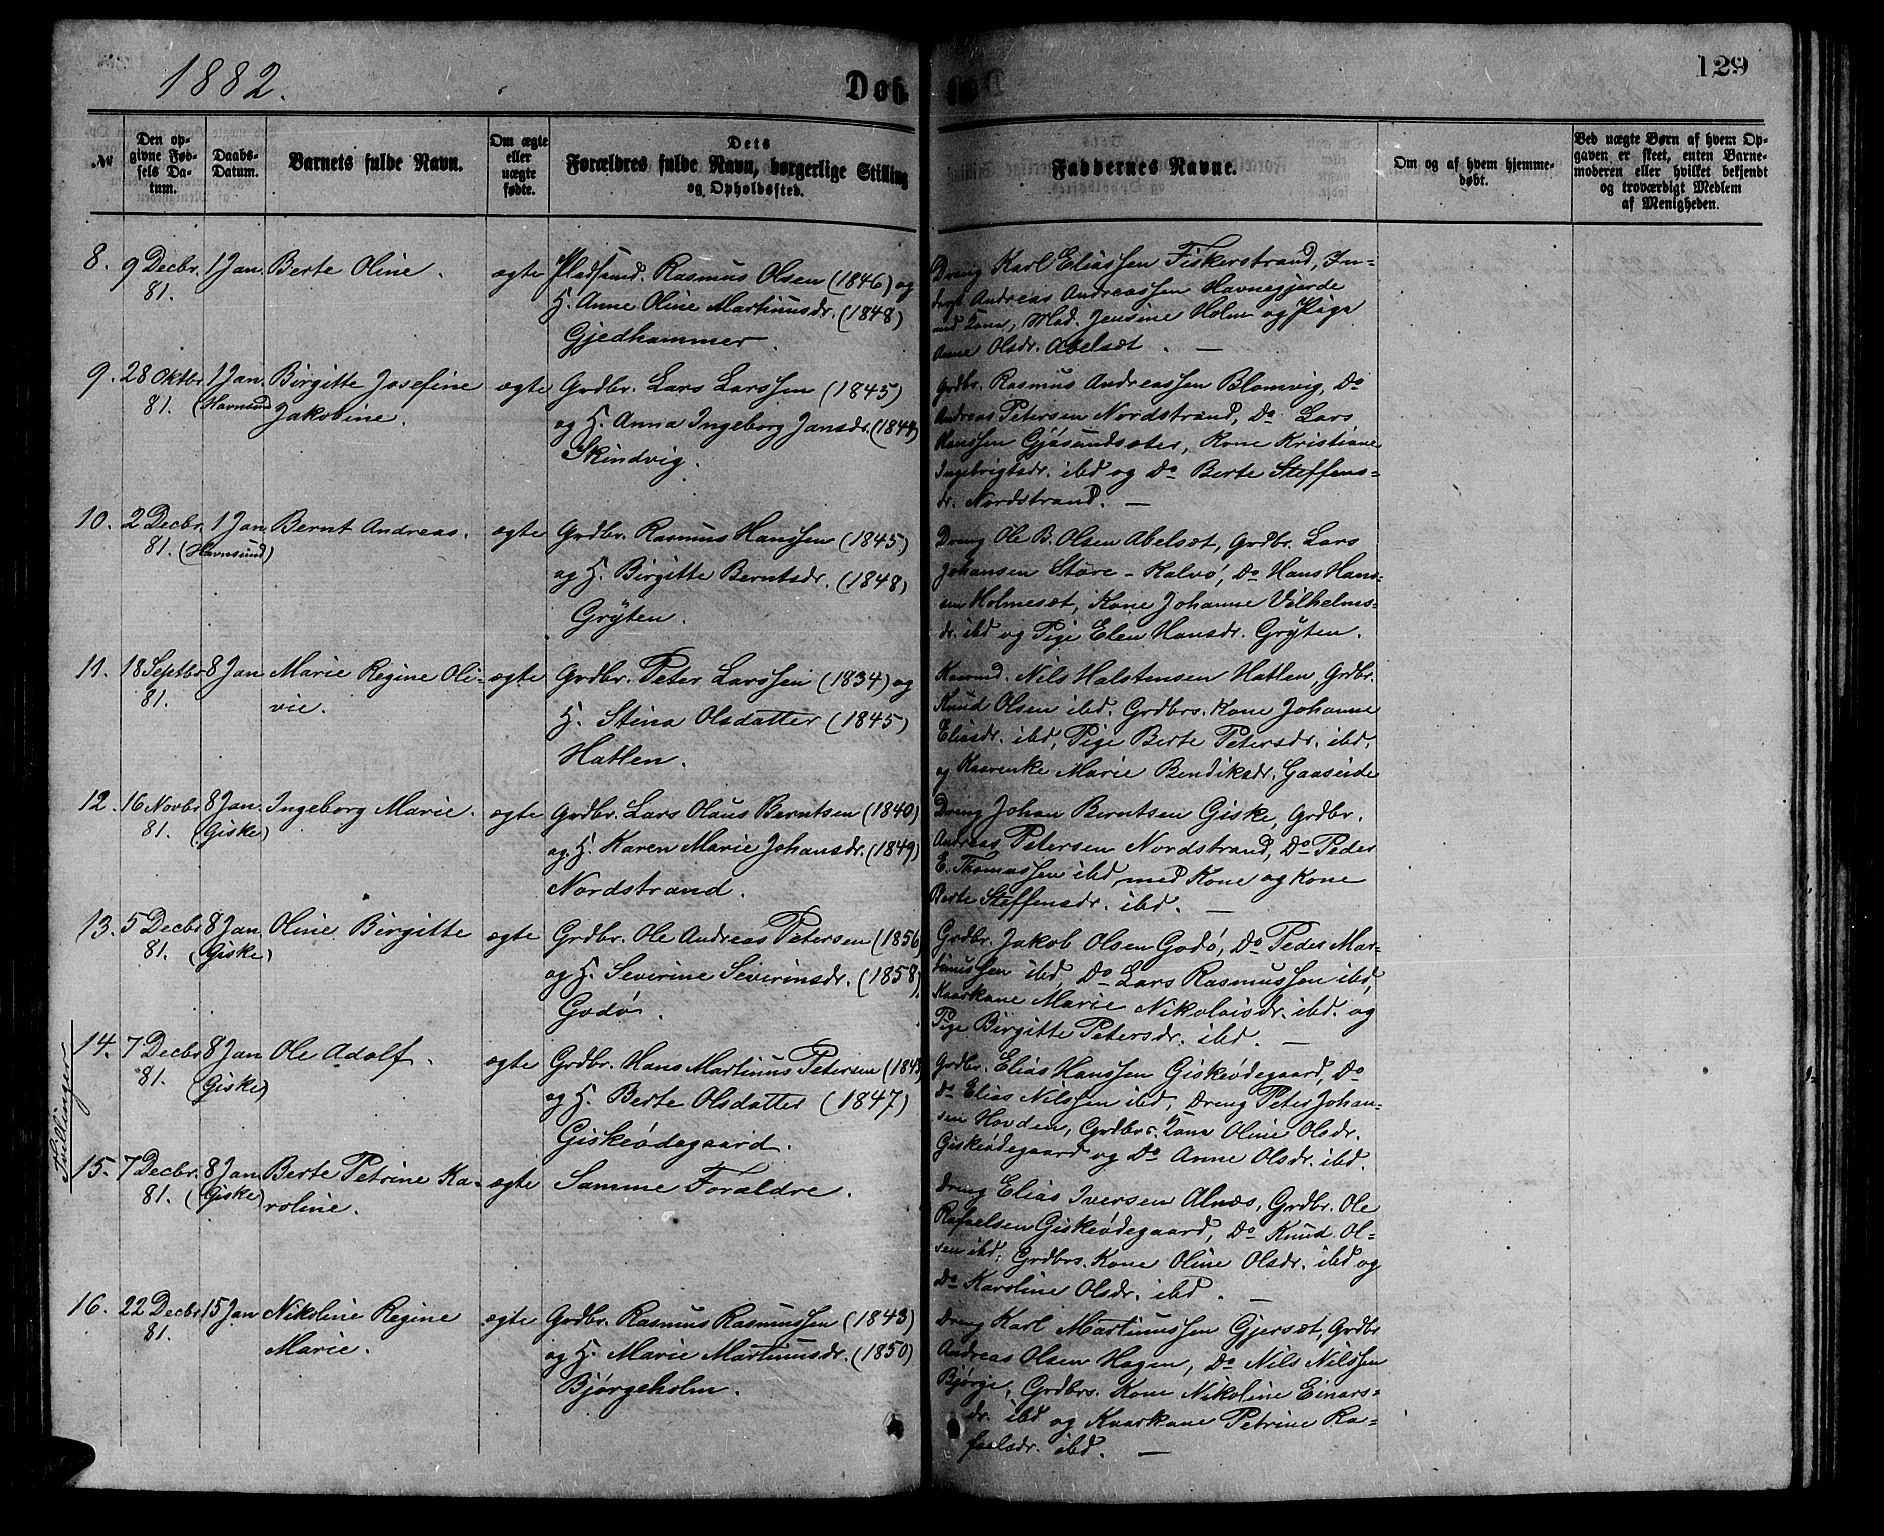 1882.
Døb.
129
№
Den opgivne Fødsels Datum.
Daabs-Datum.
Barnets fulde Navn.
Om ægte eller uægte fødte.
Dets Forældres fulde Navn, borgerlige Stilling og Opholdssted.
Faddernes Navne.
Om og af hvem hjemmedøbt.
Ved uægte Børn af hvem Opgaven er skeet, enten Barnemoderen eller hvilket bekjendt og troværdigt Medlem af Menigheden.
8. 9 Decbr. 81. 1 Jan. Berte Oline. ægte
Pladsmd. Rasmus Olsen (1846) og
H. Anne Oline Martinusdr. (1848)
Gjedhammer.
Dreng Karl Eliassen Fiskerstrand, In-
Andreas Andreassen Havnegjerde
med Kone, Mad. Jensine Holm og Pige
Anne Olsdr. Abelsæt. —
9. 28 Oktbr. 81. 1 Jan. (Havnsund) Birgitte Josefine
Jakobine. ægte
Grdbr. Lars Larssen (1845)
og H. Anna Ingeborg Jansdr. (1844)
Skindvig.
Grdbr. Rasmus Andreassen Blomvig, Do
Andreas Petersen Nordstrand, Do Lars
Hanssen Gjøsundsæter, Kone Kristiane
Ingebrigtsdr. ibd og Do Berte Steffens-
dr. Nordstrand. —
10. 2 Decbr. 81. 1 Jan. (Havnsund) Bernt Andreas. ægte
Grdbr. Rasmus Hanssen (1845)
og H. Birgitte Berntsdr. (1848)
Grÿten.
Dreng Ole B. Olsen Abelsæt, Grdbr. Lars
Johansen Støre-Kalvø, Do Hans Hans-
sen Holmesæt, Kone Johanne Vilhelms-
dr. ibd og Pige Elen Hansdr. Grÿten.
11. 18 Septbr. 81. 8 Jan Marie Regine Oli-
vie. ægte
Grdbr. Peter Larssen (1834) og
H. Stina Olsdatter (1845)
Hatlen.
Kaarmd. Nils Halstensen Hatlen, Grdbr.
Knud Olsen ibd. Grdbrs. Kone Johanne
Eliasdr. ibd, Pige Berte Petersdr. ibd.
og Kaarenke Marie Bendiksdr. Gaaseide
12. 16 Novbr. 81. 8 Jan. (Giske) Ingeborg Marie. ægte
Grdbr. Lars Olaus Berntsen (1840)
og H. Karen Marie Johansdr. (1849)
Nordstrand.
Dreng Johan Berntsen Giske, Grdbr.
Andreas Petersen Nordstrand, Do Peder
E. Thomassen ibd, med Kone og Kone
Berte Steffensdr. ibd. —
13. 5 Decbr 81. 8 Jan. (Giske) Oline Birgitte ægte
Grdbr. Ole Andreas Petersen (1856
og H. Severine Severinsdr. (1858)
Godø.
Grdbr. Jakob Olsen Godø, Do Peder Mar-
tinussen ibd, Do Lars Rasmussen ibd,
Kaarkone Marie Nikolaisdr. ibd. og
Pige Birgitte Petersdr. ibd. —
Tvillinger
14. 7 Decbr 81. 8 Jan (Giske) Ole Adolf. ægte
Grdbr. Hans Martinus Petersen (1843
og H. Berte Olsdatter (1847)
Giskeødegaard.
Grdbr. Elias Hanssen Giskeødegaard, Do
Do Elias Nilssen ibd, Dreng Peter Johan-
sen Hovden, Grdbrs. Kone Oline Olsdr.
Giskeødegaard og Do Anne Olsdr. ibd.
15. 7 Decbr. 81. 8 Jan. (Giske) Berte Petrine Ka-
roline. ægte
Samme Forældre.
Dreng Elias Iversen Alnæs, Grdbr. Ole
Rafaelsen Giskeødegaard, Do Knud Ol-
sen ibd, Grdbrs. Kone Oline Olsdr. ibd og
Do Karoline Olsdr. ibd. —
16. 22 Decbr 81. 15 Jan Nikoline Regine
Marie. ægte
Grdbr. Rasmus Rasmussen (1843)
og H. Marie Martinusdr. (1850)
Bjørgeholm.
Dreng Karl Martinussen Gjersæt, Grdbr
Andreas Olsen Hagen, Do Nils Nilssen
Bjørge, Grdbrs. Kone Nikoline Einars-
dr. ibd og Kaarkone Petrine Ra-
faelsdr. ibd. —